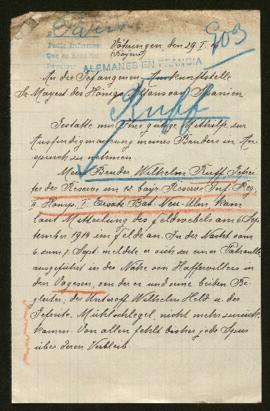 Pedir Informes
Vöhringen, den 29. V.
(Bayern)
903
ALEMANES EN FRANCIA
An die Gefangenen-Auskunftstelle
Sr. Mayest. des Königs Alfons von Spanien
Ruff
Gestatte mir Ihre gütige Mithilfe zur
Ausfindigmachung meines Bruders in An-
spruch zu nehmen.
Mein Bruder Wilhelm Ruff, Gefrei-
ter der Reserve im 12. bayr. Reserve Inf. Reg.
Komp. I. Ersatz Bat. Neu-Ulm, kam
laut Mitteilung des Feldwebels am 6. Sep-
tember 1914 ins Feld. In der Nacht vom
6. zum 7. Sept. meldete er sich zu einer Patrouille
ausgeführt in der Nähe von
Vogesen, von der er und seine beiden Be-
gleiter, der Unteroff. Wilhelm Held u. der
Gefreite Mühlschlegel, nicht mehr zurück-
kamen. Von allen fehlt bisher jede Spur
über deren Verbleib.